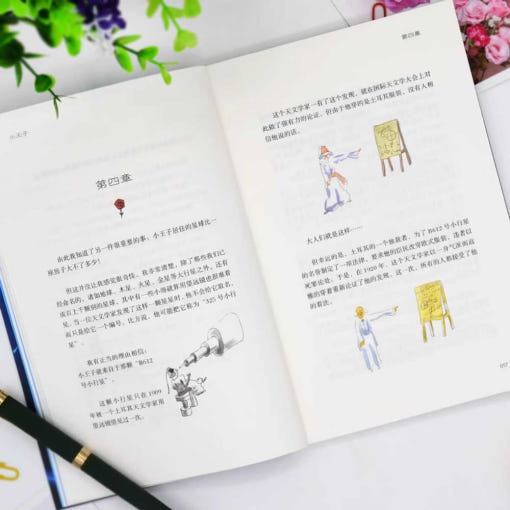 小王子
第四章
由此我知道了另一件很重要的事：小王子居住的星球比一
座房子大不了多少！
但这并没让我感觉很奇怪。我非常清楚，除了那些我们已
经命名的，诸如地球、木星、火星、金星等大行星之外，还有
成百上千颗别的星球，其中有一些小得就算用望远镜也很难看
见。当一位天文学家发现了这样一颗星星时，他不会给它取名，
而只是给它一个编号。比方说，他可能把它称为“325 号小行
星”。
我有正当的理由相信，
小王子就来自于那颗“B612
号小行星”。
这颗小行星只在 1909
年被一个土耳其天文学家用
望远镜望见过一次。
第四章
这个天文学家一有了这个发现，就在国际天文学大会上对
此做了强有力的论证。但由于他穿的是土耳其服装，没有人相
信他说的话。
大人们就是这样……
但幸运的是，土耳其的一个独裁者，为了 B612 号小行星
的名誉制定了一项法律，要求他的臣民改穿欧式服装，违者以
死罪论处。于是，在 1920 年，这个天文学家以一身气派而高
雅的穿着重新论证了他的发现。这一次，所有的人都接受了他
的看法。
017